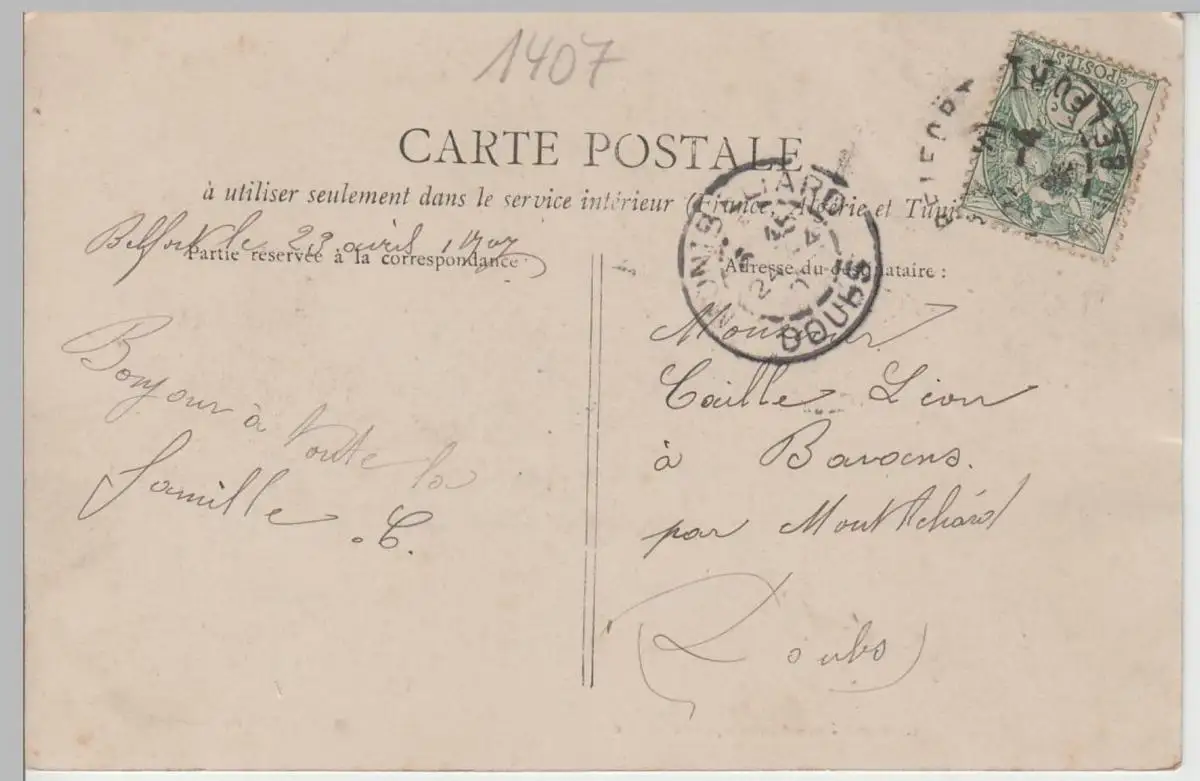 1407
CARTE POSTALE
à utiliser seulement dans le service intérieur (France, Algérie et Tunisie
Belfort le 23 avril 1907
Partie réservée à la correspondance
Adresse du destinataire :
Bonjour à toute la
famille
C.
Monsieur
Caille Léon
à Bavans.
par Montbéliard
(Doubs)
MONTBÉLIARD
DOUBS
BELFORT
POSTES